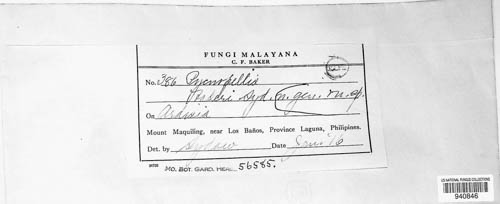 FUNGI MALAYANA
C. F. BAKER
No. 386
Syd. n. gen. n. sp.
On
Mount Maquiling, near Los Baños, Province Laguna, Philipines.
Det. by Sydow Date '16
MO. BOT. GARD. HERB. 56585.
US NATIONAL FUNGUS COLLECTIONS
940846